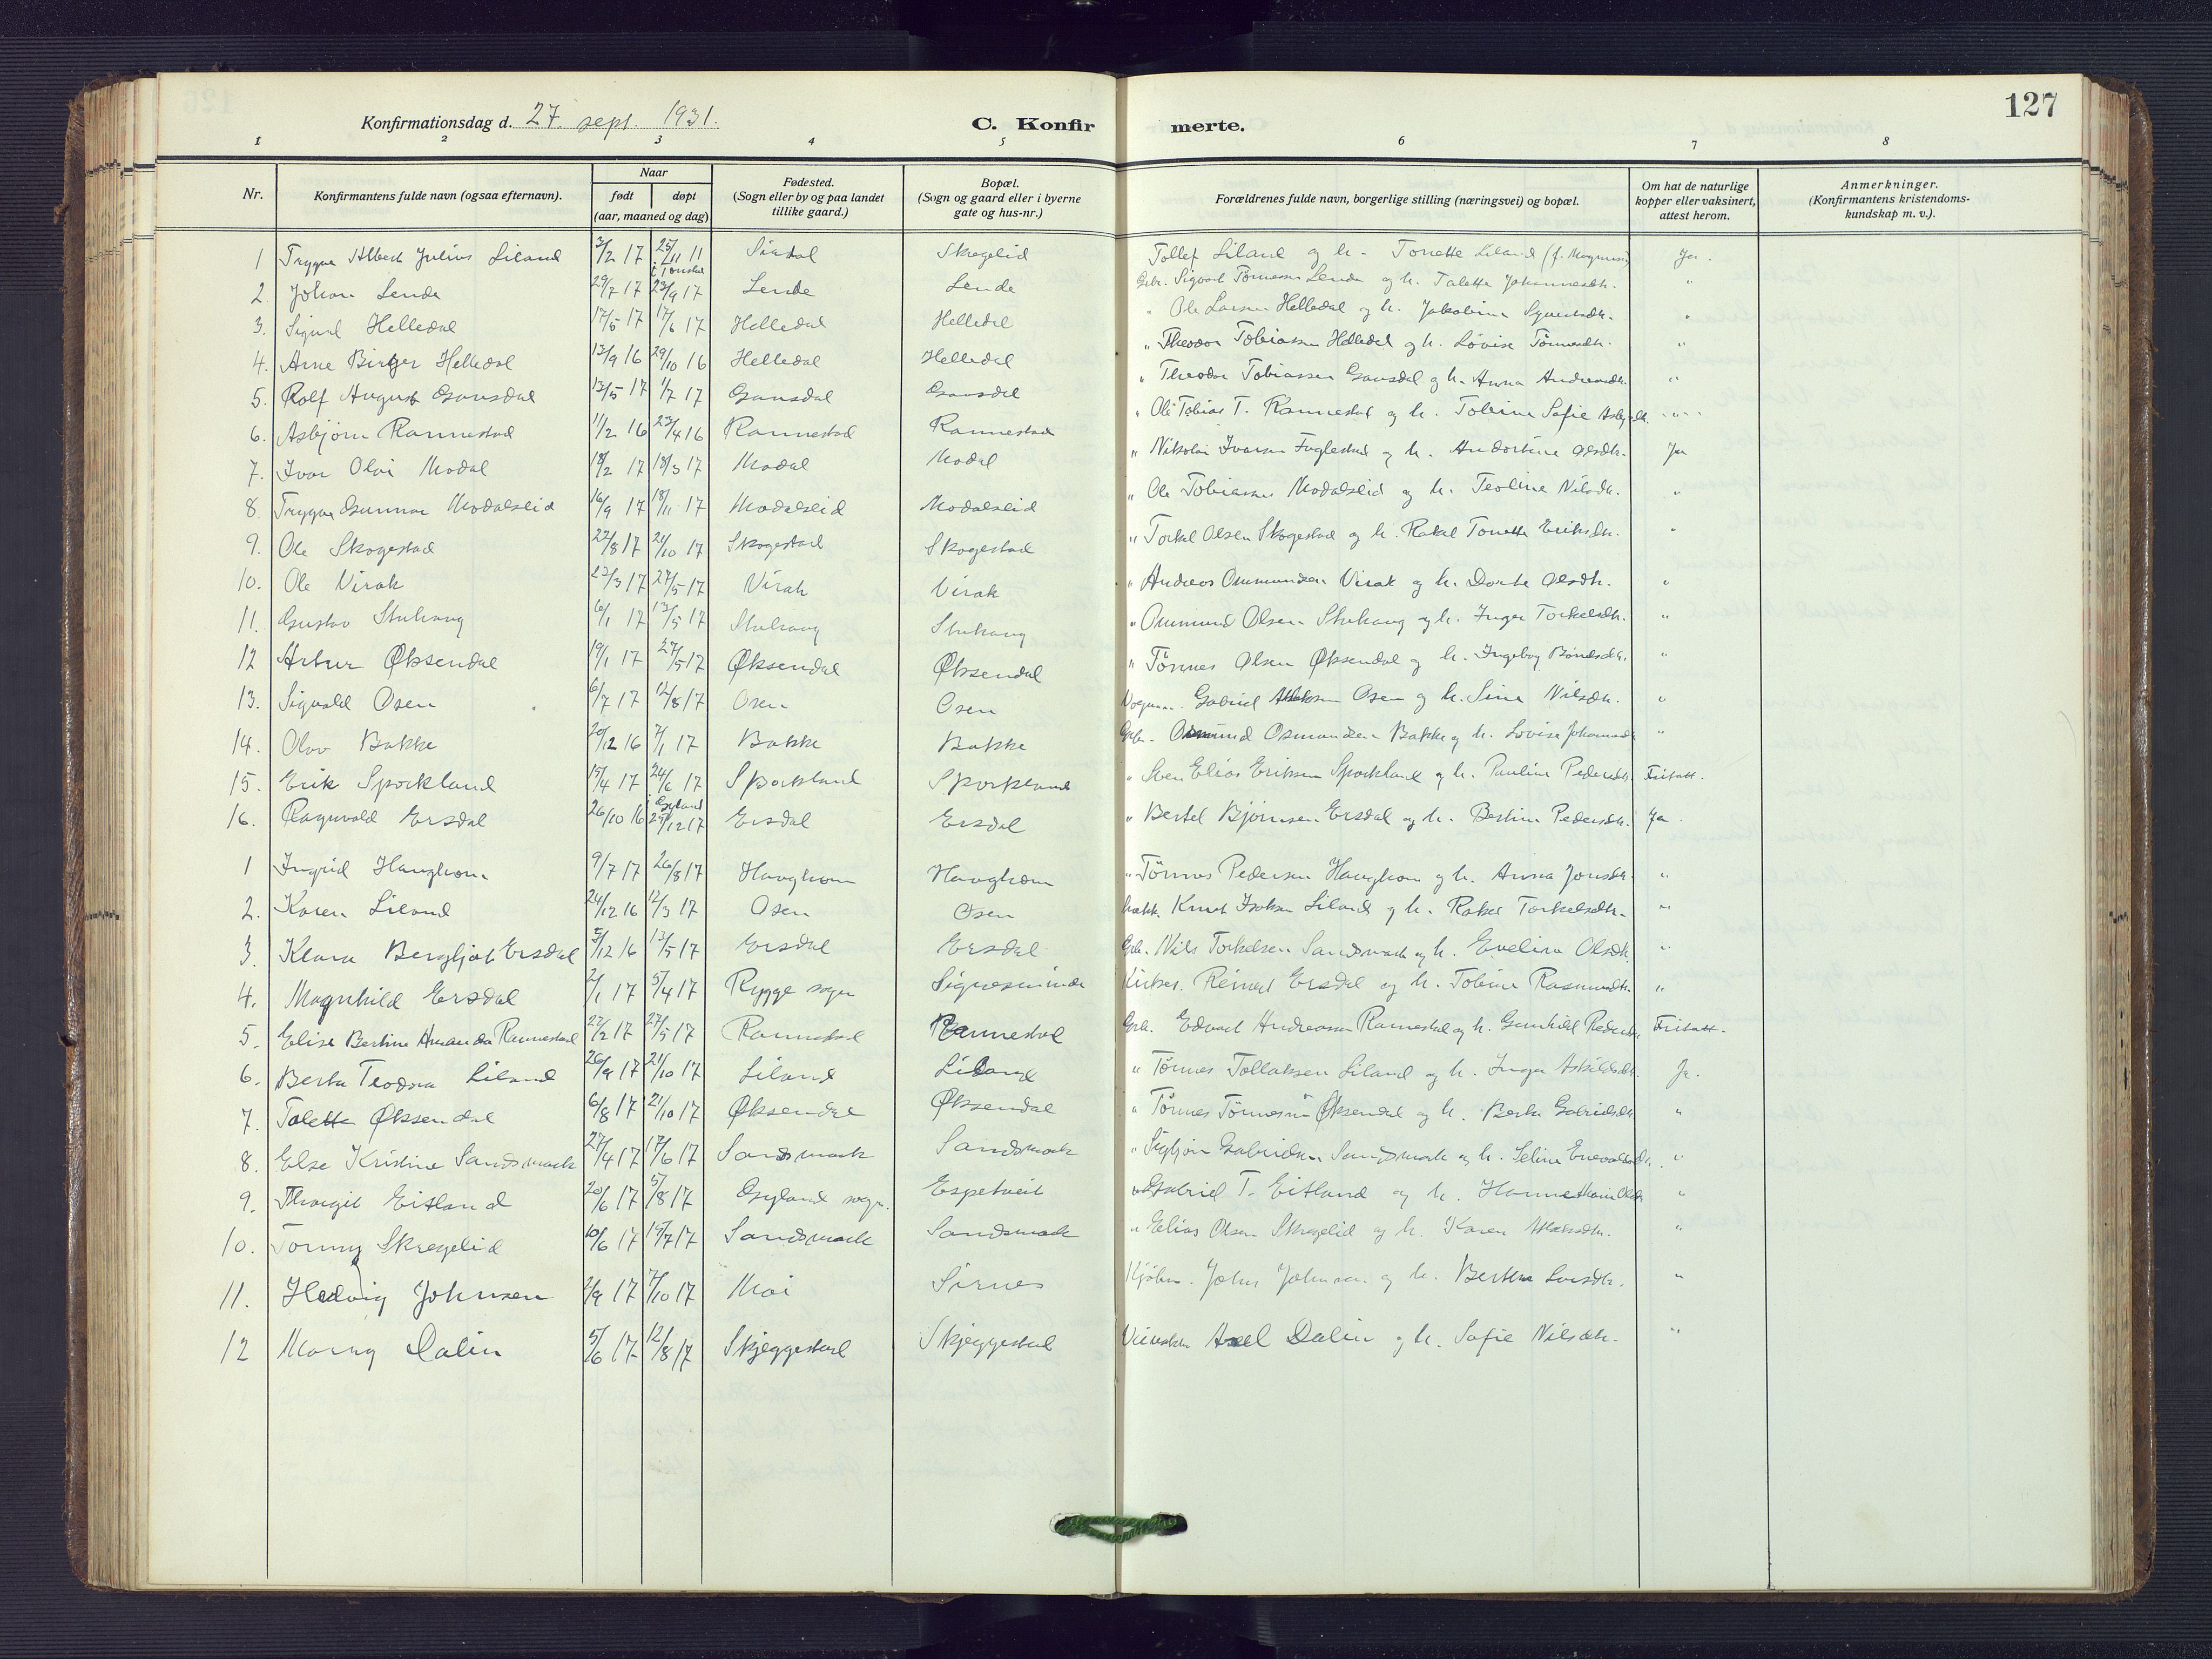 127
Konfirmationsdag d. 27. sept. 1931.
C. Konfir merte.
1 2 3 4 5 6 7 8
Nr.
Konfirmantens fulde navn (ogsaa efternavn).
Naar
født døpt
(aar, maaned og dag)
Fødested.
(Sogn eller by og paa landet
tillike gaard.)
Bopæl.
(Sogn og gaard eller i byerne
gate og hus-nr.)
Forældrenes fulde navn, borgerlige stilling (næringsvei) og bopæl.
Om hat de naturlige
kopper eller vaksinert,
attest herom.
Anmerkninger.
(Konfirmantens kristendoms-
kundskap m. v.).
1 Trygve Albert Julius Liland 3/2 17 25/11 11 Skregelid Tollef Liland og h. Tonette Liland Ja.
2. Johan Lende 29/7 17 23/9 17 Lende Lende Gbr. Sigvart Tønnessen Lende og h. Talette Johannesdtr. "
3. Sigurd Helledal 17/5 17 17/6 17 Helledal Helledal " Ole Larsen Helledal og h. Jakobine "
4. Arne Birger Helledal 13/9 16 29/10 16 Helledal Helledal " Theodor Tobiassen Helledal og h. Lovise Tönnesdtr. "
5. Rolf August Gausdal 13/5 17 1/7 17 Gausdal Gausdal " Theodor Tobiassen Gausdal og h. Anna Andreasdtr. "
6. Asbjörn Rannestad 11/2 16 23/4 16 Rannestad Rannestad " Ole Tobias T. Rannestad og h. Tobine Sofie "
7. Ivar Olai Modal 18/2 17 18/3 17 Modal Modal " Nikolai Ivarsen Fuglestad og h. Andortine Olsdtr. Ja
8. Trygve Gunnar Modalsleid 16/9 17 18/11 17 Modalsleid Modalsleid " Ole Tobiassen Modalsleid og h. Teoline Nilsdtr. "
9. Ole Skogestad 22/8 17 21/10 17 Skogestad Skogestad " Torkel Olsen Skogestad og h. Rakel Tonette Eriksdtr. "
10. Ole Virak 23/3 17 27/5 17 Virak Virak " Andreas Ommundsen Virak og h. Dorte Olsdtr. "
11. Gustav Stuhaug 6/1 17 13/5 17 Stuhaug Stuhaug " Ommund Olsen Stuhaug og h. Inger Torkelsdtr. "
12 Artur Øksendal 19/1 17 27/5 17 Øksendal Øksendal " Tönnes Olsen Øksendal og h. Ingeborg "
13. Sigvald Osen 6/7 17 12/8 17 Osen Osen Gabriel Osen og h. Sina Nilsdtr. "
14. Olav Bakke 20/12 16 7/1 17 Bakke Bakke Gbr. Osmund Osmundsen Bakke og h. Lovise "
15. Erik Sporkland 15/4 17 24/6 17 Sporkland Sporkland " Sven Elias Eriksen Sporkland og h. Pauline Pedersdtr. Fritatt.
16. Ragnvald Ersdal 26/10 16 i Gyland 27/12 17 Ersdal Ersdal " Bertel Björnsen Ersdal og h. Bertine Pedersdtr. Ja.
1 Ingrid Haughom 9/7 17 26/8 17 Haughom Haughom " Tönnes Pedersen Haughom og h. Anna Jonsdtr. "
2. Karen Liland 24/12 16 12/3 17 Osen Osen Knut Isaksen Liland og h. Rakel Torkelsdtr. "
3. Klara Bergljot Ersdal 5/12 16 13/5 17 Ersdal Ersdal Gbr. Nils Torkelsen Sandsmark og h. Evelina Olsdtr. "
4. Magnhild Ersdal 2/1 17 5/4 17 Rygge sogn Kirkes. Reinert Ersdal og h. Tobine Rasmusdtr. "
5. Elise Bertine Amanda Rannestad 22/2 17 27/5 17 Rannestad Rannestad Gbr. Edvart Andreassen Rannestad og h. Gunhild Pedersdtr. Fritatt.
6. Berta Teodora Liland 26/9 17 21/10 17 Liland Liland " Tönnes Tollaksen Liland og h. Inger Askildsdtr. Ja.
7. Talette Øksendal 6/8 17 21/10 17 Øksendal Øksendal " Tönnes Tönnessen Øksendal og h. Berta Gabrielsdtr. "
8. Else Kristine Sandsmark 27/4 17 17/6 17 Sandsmark Sandsmark " Sigbjörn Gabrielsen Sandsmark og h. Seline "
9. Thorgit Eitland 20/6 17 5/8 17 Gyland sogn. Espetveit " Gabriel T. Eitland og h. Hanne "
10. Tonny Skregelid 10/6 17 15/7 17 Sandsmark Sandsmark " Elias Olsen Skregelid og h. Karen "
11. Hedvig Johnsen 2/9 17 7/10 17 Moi Sirnes Kjøbm. John Johnsen og h. Bertha "
12 Marny Dalin 5/6 17 12/8 17 Skjeggestad Skjeggestad Axel Dalin og h. Sofie Nilsdtr. "